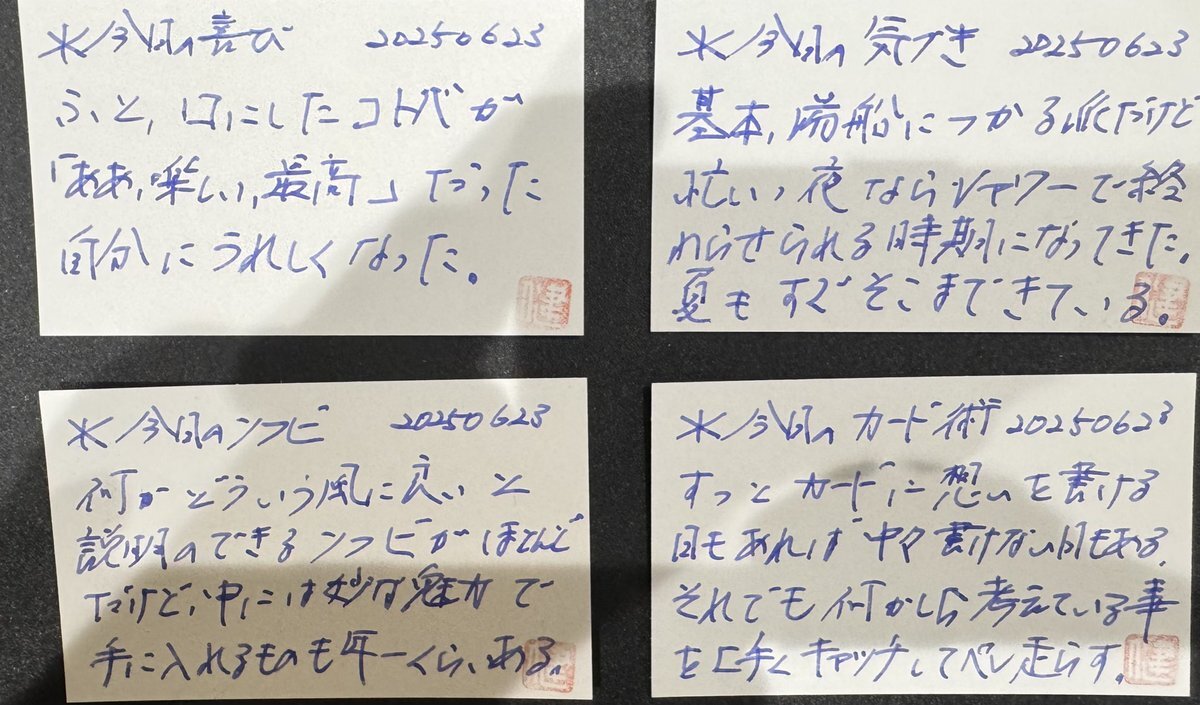 ※今日の喜び 20250623
ふと、口にしたコトバが
「ああ、楽しい、最高」だった
自分にうれしくなった。
※今日の気づき 20250623
基本、湯船につかる派だけど
忙しい夜ならシャワーで終
わらせられる時期になってきた。
夏もすぐそこまできている。
※今日のンフビ 20250623
何がどういう風に良いと
説明のできるンフビがほとんど
だけど、中には妙な魅力で
手に入れるものも年一くらいある。
※今日のカード術 20250623
すっとカードに想いを書ける
日もあれば中々書けない日もある。
それでも何かしら考えている事
を上手くキャッチしてペン走らす。